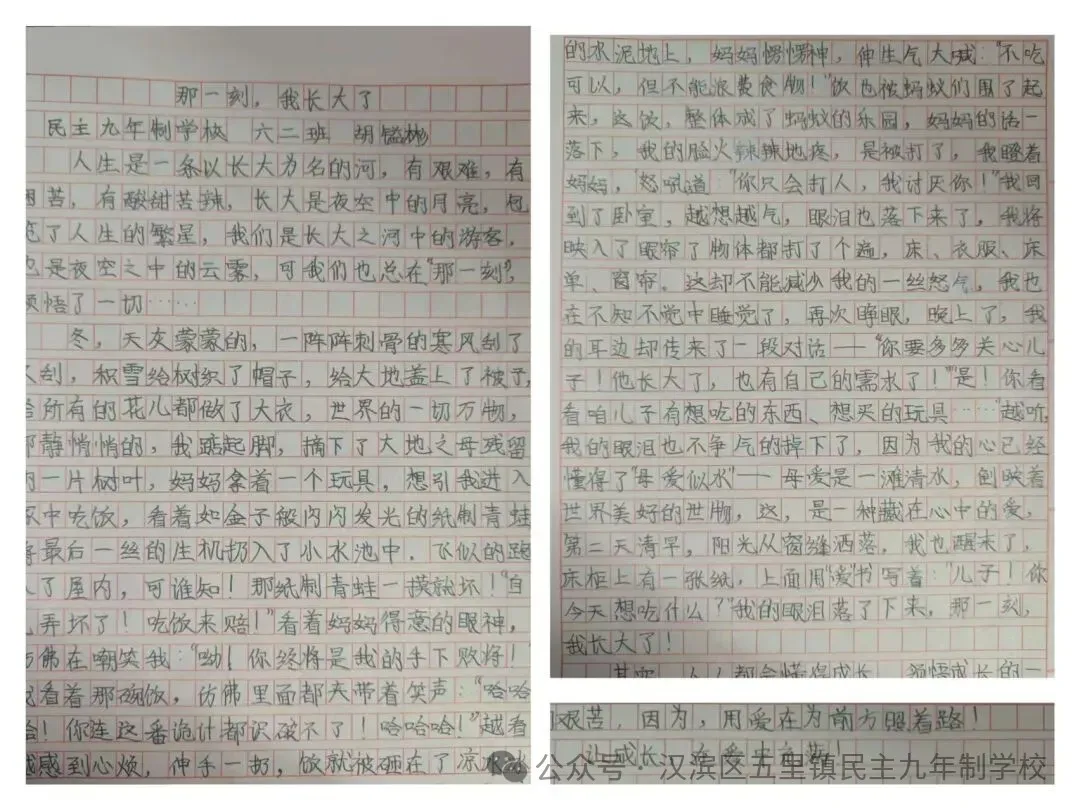 那一刻，我长大了
民主九年制学校 六二班 胡镒彬
人生是一条以长大为名的河，有艰难，有
困苦，有酸甜苦辣，长大是夜空中的月亮，包
览了人生的繁星，我们是长大之河中的游客，
也是夜空之中的云雾，可我们也总在“那一刻”，
领悟了一切……
冬，天灰蒙蒙的，一阵阵刺骨的寒风刮了
又刮，积雪给树织了帽子，给大地盖上了被子，
给所有的花儿都做了大衣，世界的一切万物，
都静悄悄的，我踮起脚，摘下了大地之母残留
的一片树叶，妈妈拿着一个玩具，想引我进入
家中吃饭，看着如金子般闪闪发光的纸制青蛙
将最后一丝的生机扔入了小水池中，飞似的跑
入了屋内，可谁知！那纸制青蛙一摸就坏！“自
己弄坏了！吃饭来赔！”看着妈妈得意的眼神，
仿佛在嘲笑我：“呦！你终将是我的手下败将！
我看着那碗饭，仿佛里面都夹带着笑声：“哈哈
哈！你连这番诡计都识破不了！哈哈哈！”越看
越感到心烦，伸手一扔，饭就被砸在了凉冰冰
的水泥地上，妈妈愣愣神，伸生气大喊：“不吃
可以，但不能浪费食物！”饭也被蚂蚁们围了起
来，这饭，整体成了蚂蚁的乐园，妈妈的话一
落下，我的脸火辣辣地疼，是被打了，我瞪着
妈妈，怒吼道：“你只会打人，我讨厌你！”我回
到了卧室，越想越气，眼泪也落下来了，我将
映入了眼帘了物体都打了个遍，床、衣服、床
单、窗帘。这却不能减少我的一丝怒气，我也
在不知不觉中睡觉了，再次睁眼，晚上了，我
的耳边却传来了一段对话——“你要多多关心儿
子！他长大了，也有自己的需求了！”“是！你看
看咱儿子有想吃的东西、想买的玩具……”越听，
我的眼泪也不争气的掉下了，因为我的心已经
懂得了“母爱似水”——母爱是一滩清水，倒映着
世界美好的世物，这，是一种藏在心中的爱，
第二天清早，阳光从窗缝洒落，我也醒来了，
床柜上有一张纸，上面用“爱书”写着：“儿子！你
今天想吃什么？”我的眼泪落了下来，那一刻，
我长大了！
其实，人人都会懂得成长，领悟成长的一
切艰苦，因为，用爱在为前方照着路！
让成长，在爱中
公众号·汉滨区五里镇民主九年制学校